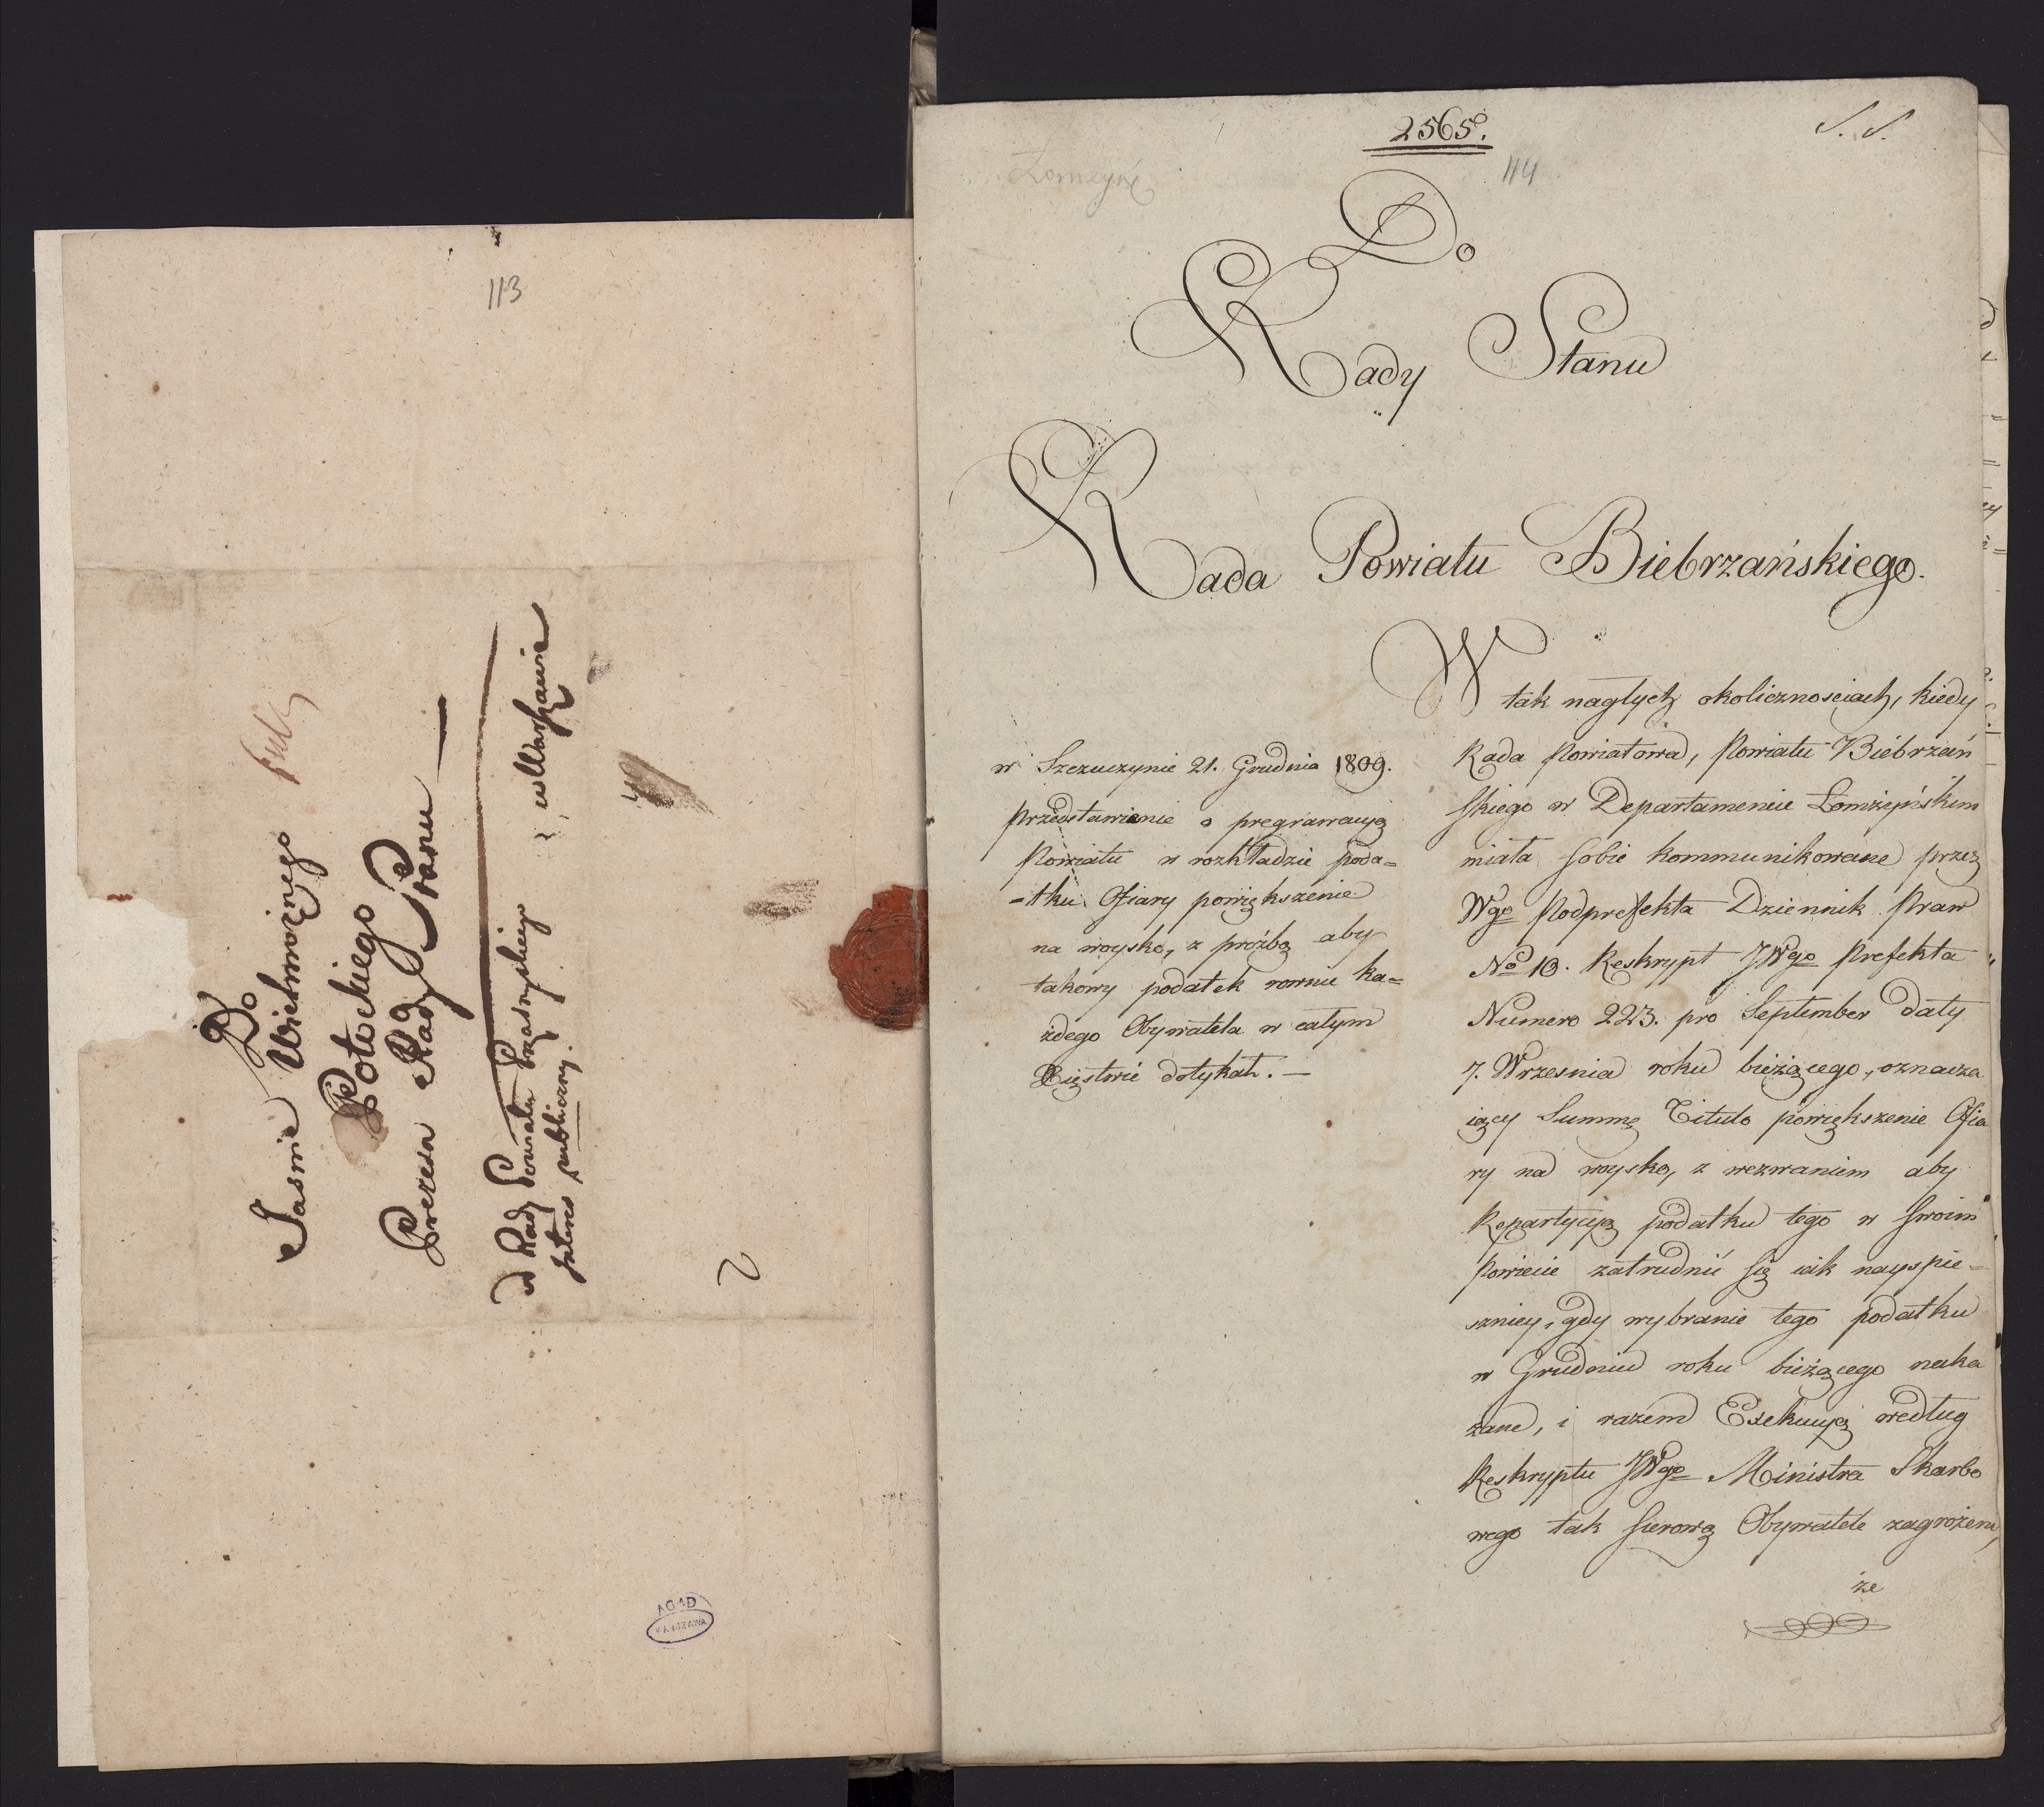 113
Do
Jasnie Wielmożnego
Potockiego
Prezesa Rady Stanu
w Warszawie
od Rady Powiatu Przasnyskiego
Interes publiczny.
AGAD
WARSZAWA
2565.
S. S.
114
Łomżyń
Do
Rady Stanu
Rada Powiatu Biebrzańskiego.
w Szczuczynie 21. Grudnia 1809.
Przedstawienie o pregrawacyą
Powiatu w rozkładzie poda=
=tku Ofiary powiększenie
na woysko, z proźbą aby
takowy podatek rownie ka=
żdego Obywatela w całym
Xięstwie dotykał. —
W tak nagłych okolicznosciach, kiedy
Rada Powiatowa, Powiatu Biebrzań
skiego w Departamencie Łomżyńskim
miała sobie kommunikowane przez
Wgo Podprefekta Dziennik Praw
No 10. Reskrypt JWgo Prefekta
Numero 223. pro September daty
7. Wrzesnia roku bieżącego, oznacza
iący Summę Titulo powiększenie Ofia
ry na woysko, z wezwaniem aby
Repartycyą podatku tego w swoim
Powiecie zatrudnić się iak nayspie=
szniey, gdy wybranie tego podatku
w Grudniu roku bieżącego naka
zane, i razem Exekucyą według
Reskryptu JWgo Ministra Skarbo
wego tak surową Obywatele zagrożeni,
że